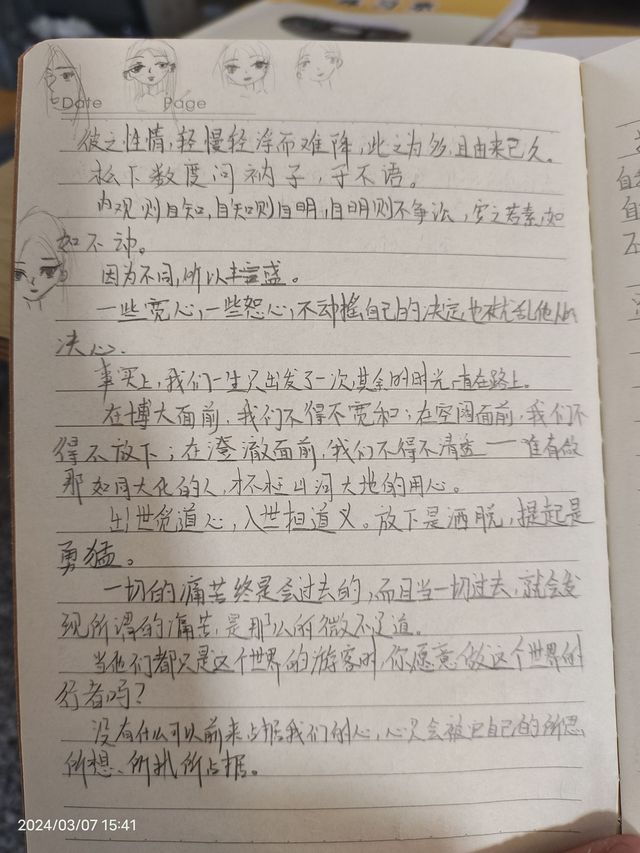 Date Page
彼之性情,轻慢轻浮而难降,此之为多,且由来已久。
松下数度问衲子,于不语。
内观则自知,自知则自明,自明则不争讼,安之若素,如
如不动。
因为不同,所以丰盛。
一些宽心,一些恕心,不动摇自己的决定,也不扰乱他人的
决心.
事实上,我们一生只出发了一次,其余的时光一直在路上。
在博大面前,我们不得不宽和;在空阔面前,我们不
得不放下;在澄澈面前,我们不得不清透——唯有做
那如同大化的人,才不枉山河大地的用心。
出世负道心,入世担道义。放下是洒脱,提起是
勇猛。
一切的痛苦终是会过去的,而且当一切过去,就会发
现所谓的痛苦,是那么的微不足道。
当他们都只是这个世界的游客时,你愿意做这个世界的
行者吗?
没有什么可以前来占据我们的心,心只会被自己的所思
所想、所执所占据。
2024/03/07 15:41